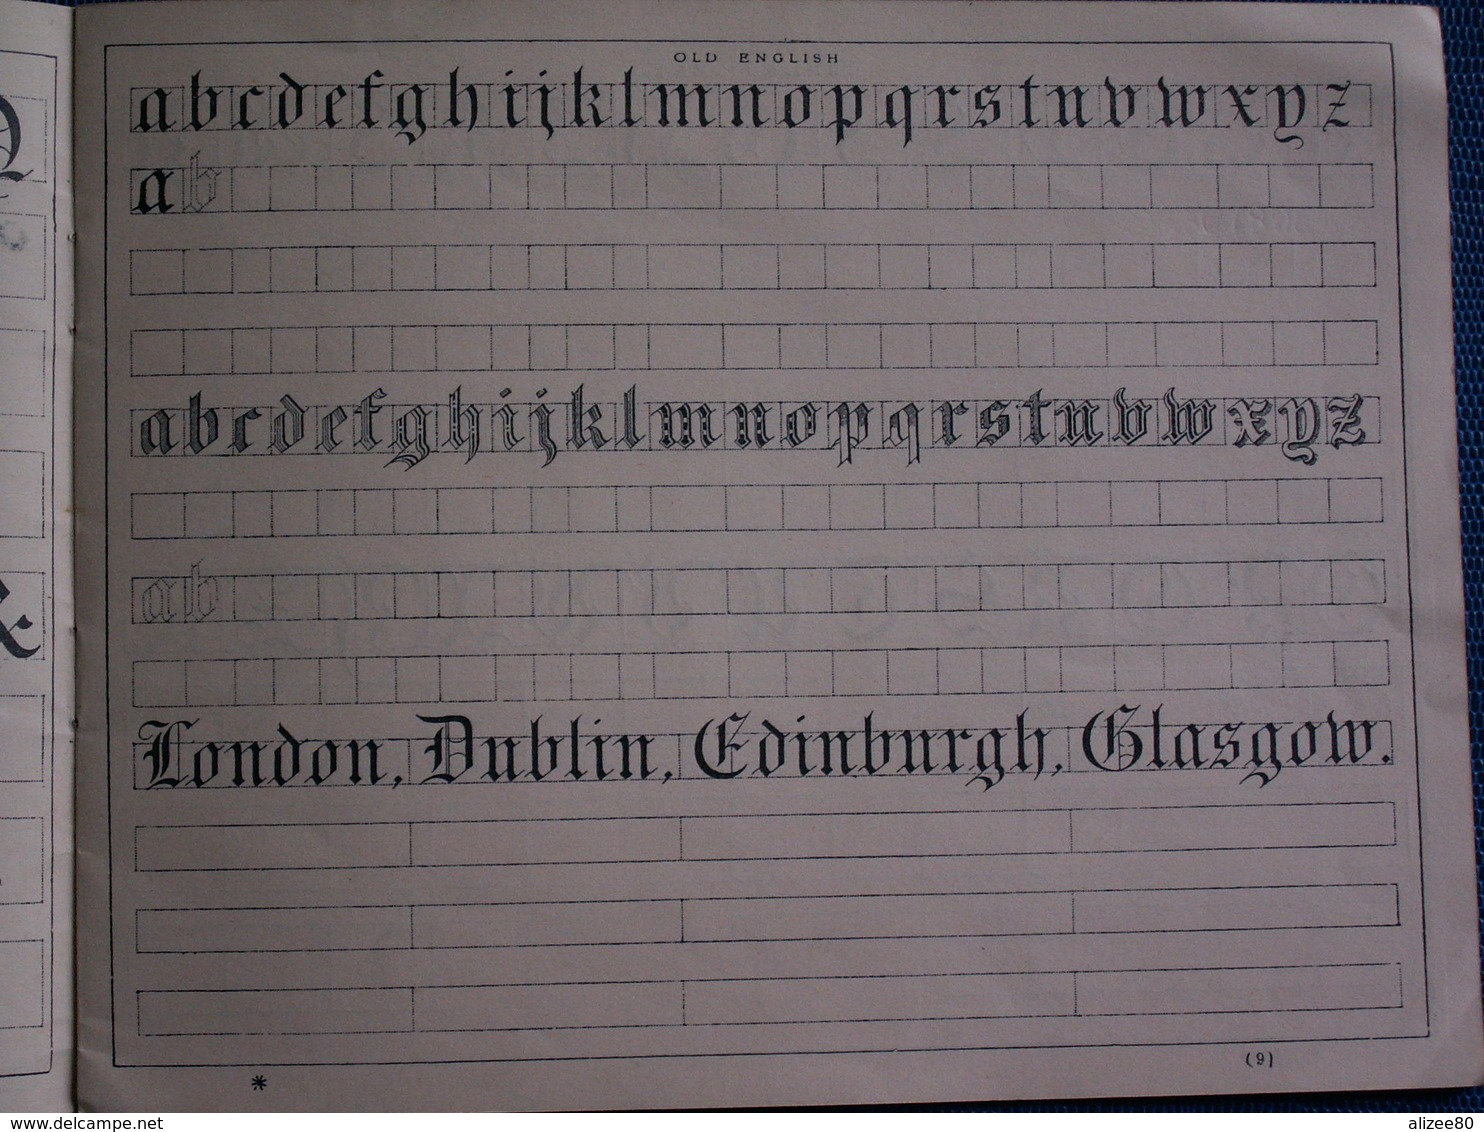 OLD ENGLISH
a b c d e f g h i j k l m n o p q r s t u v w x y z
a b
a b c d e f g h i j k l m n o p q r s t u v w x y z
a b
&
London, Dublin, Edinburgh, Glasgow.
(9)
*
delcampe.net
alizee80